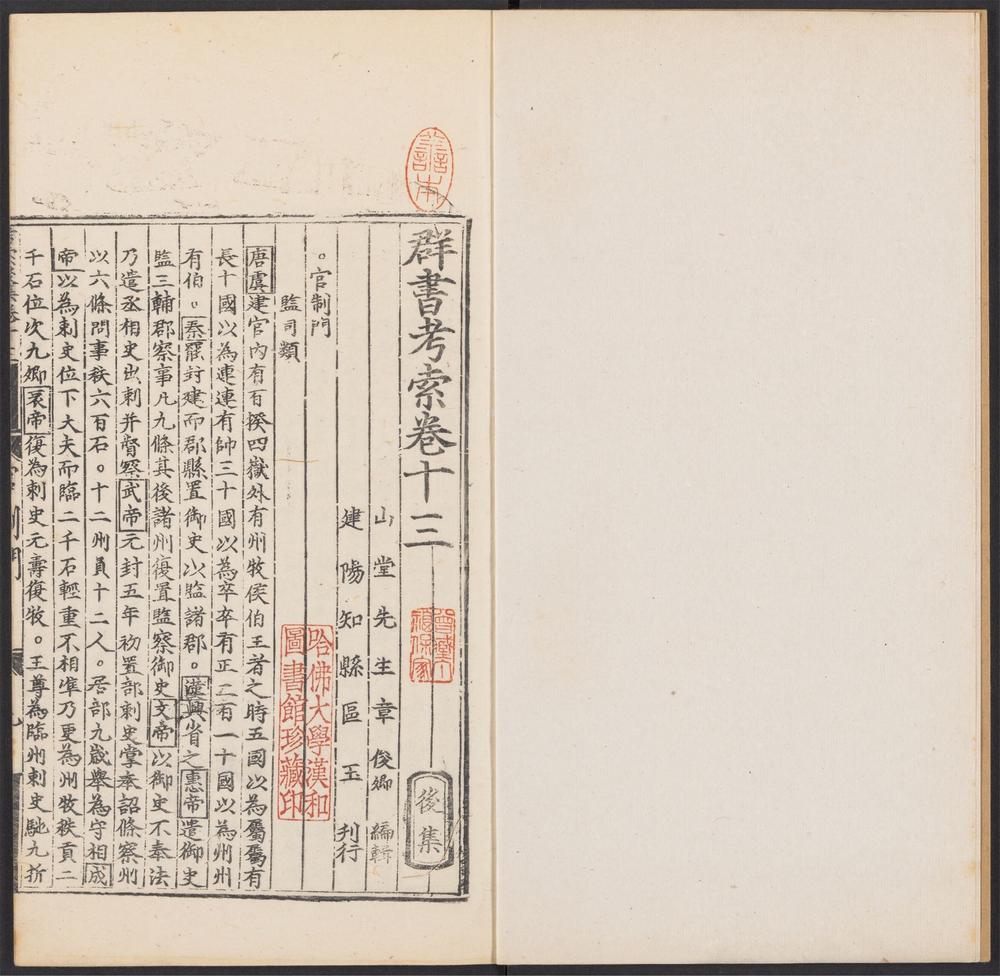 善本
群書考索卷十三
後集
山堂先生章俊卿編輯
建陽知縣區玉刊行
哈佛大學漢和
圖書館珍藏印
。官制門
監司類
唐虞建官內有百揆四嶽外有州牧侯伯王者之時五國以為屬屬有
長十國以為連連有帥三十國以為卒卒有正二百一十國以為州州
有伯。秦罷封建而郡縣置御史以監諸郡。漢興省之惠帝遣御史
監三輔郡察事凡九條其後諸州復置監察御史文帝以御史不奉法
乃遣丞相史出刺并督察武帝元封五年初置部刺史掌奉詔條察州
以六條問事秩六百石。十二州員十二人。居部九歲舉為守相成
帝以為刺史位下大夫而臨二千石輕重不相準乃更為州牧秩真二
千石位次九卿哀帝復為刺史元壽復牧。王尊為臨州刺史馳九折